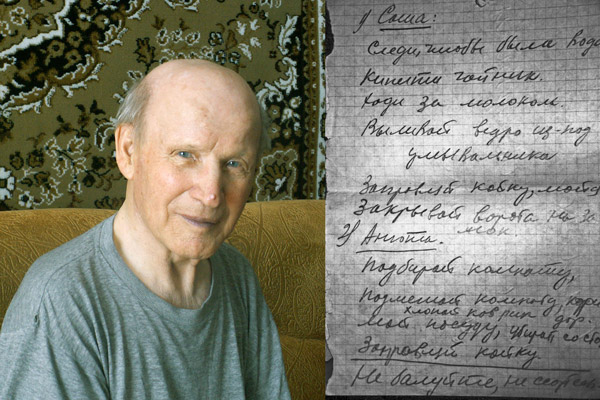 1) Саша:
Следи, чтобы была вода
Кипяти чайник.
Ходи за молоком.
Выливай ведро из-под
умывальника
Заправляй койку,
Закрывай ворота на
2)
Подбирай комнату,
Подметай комнату,
коврик
мой посуду, убирай со
Заправляй койку
Не балуйте, не